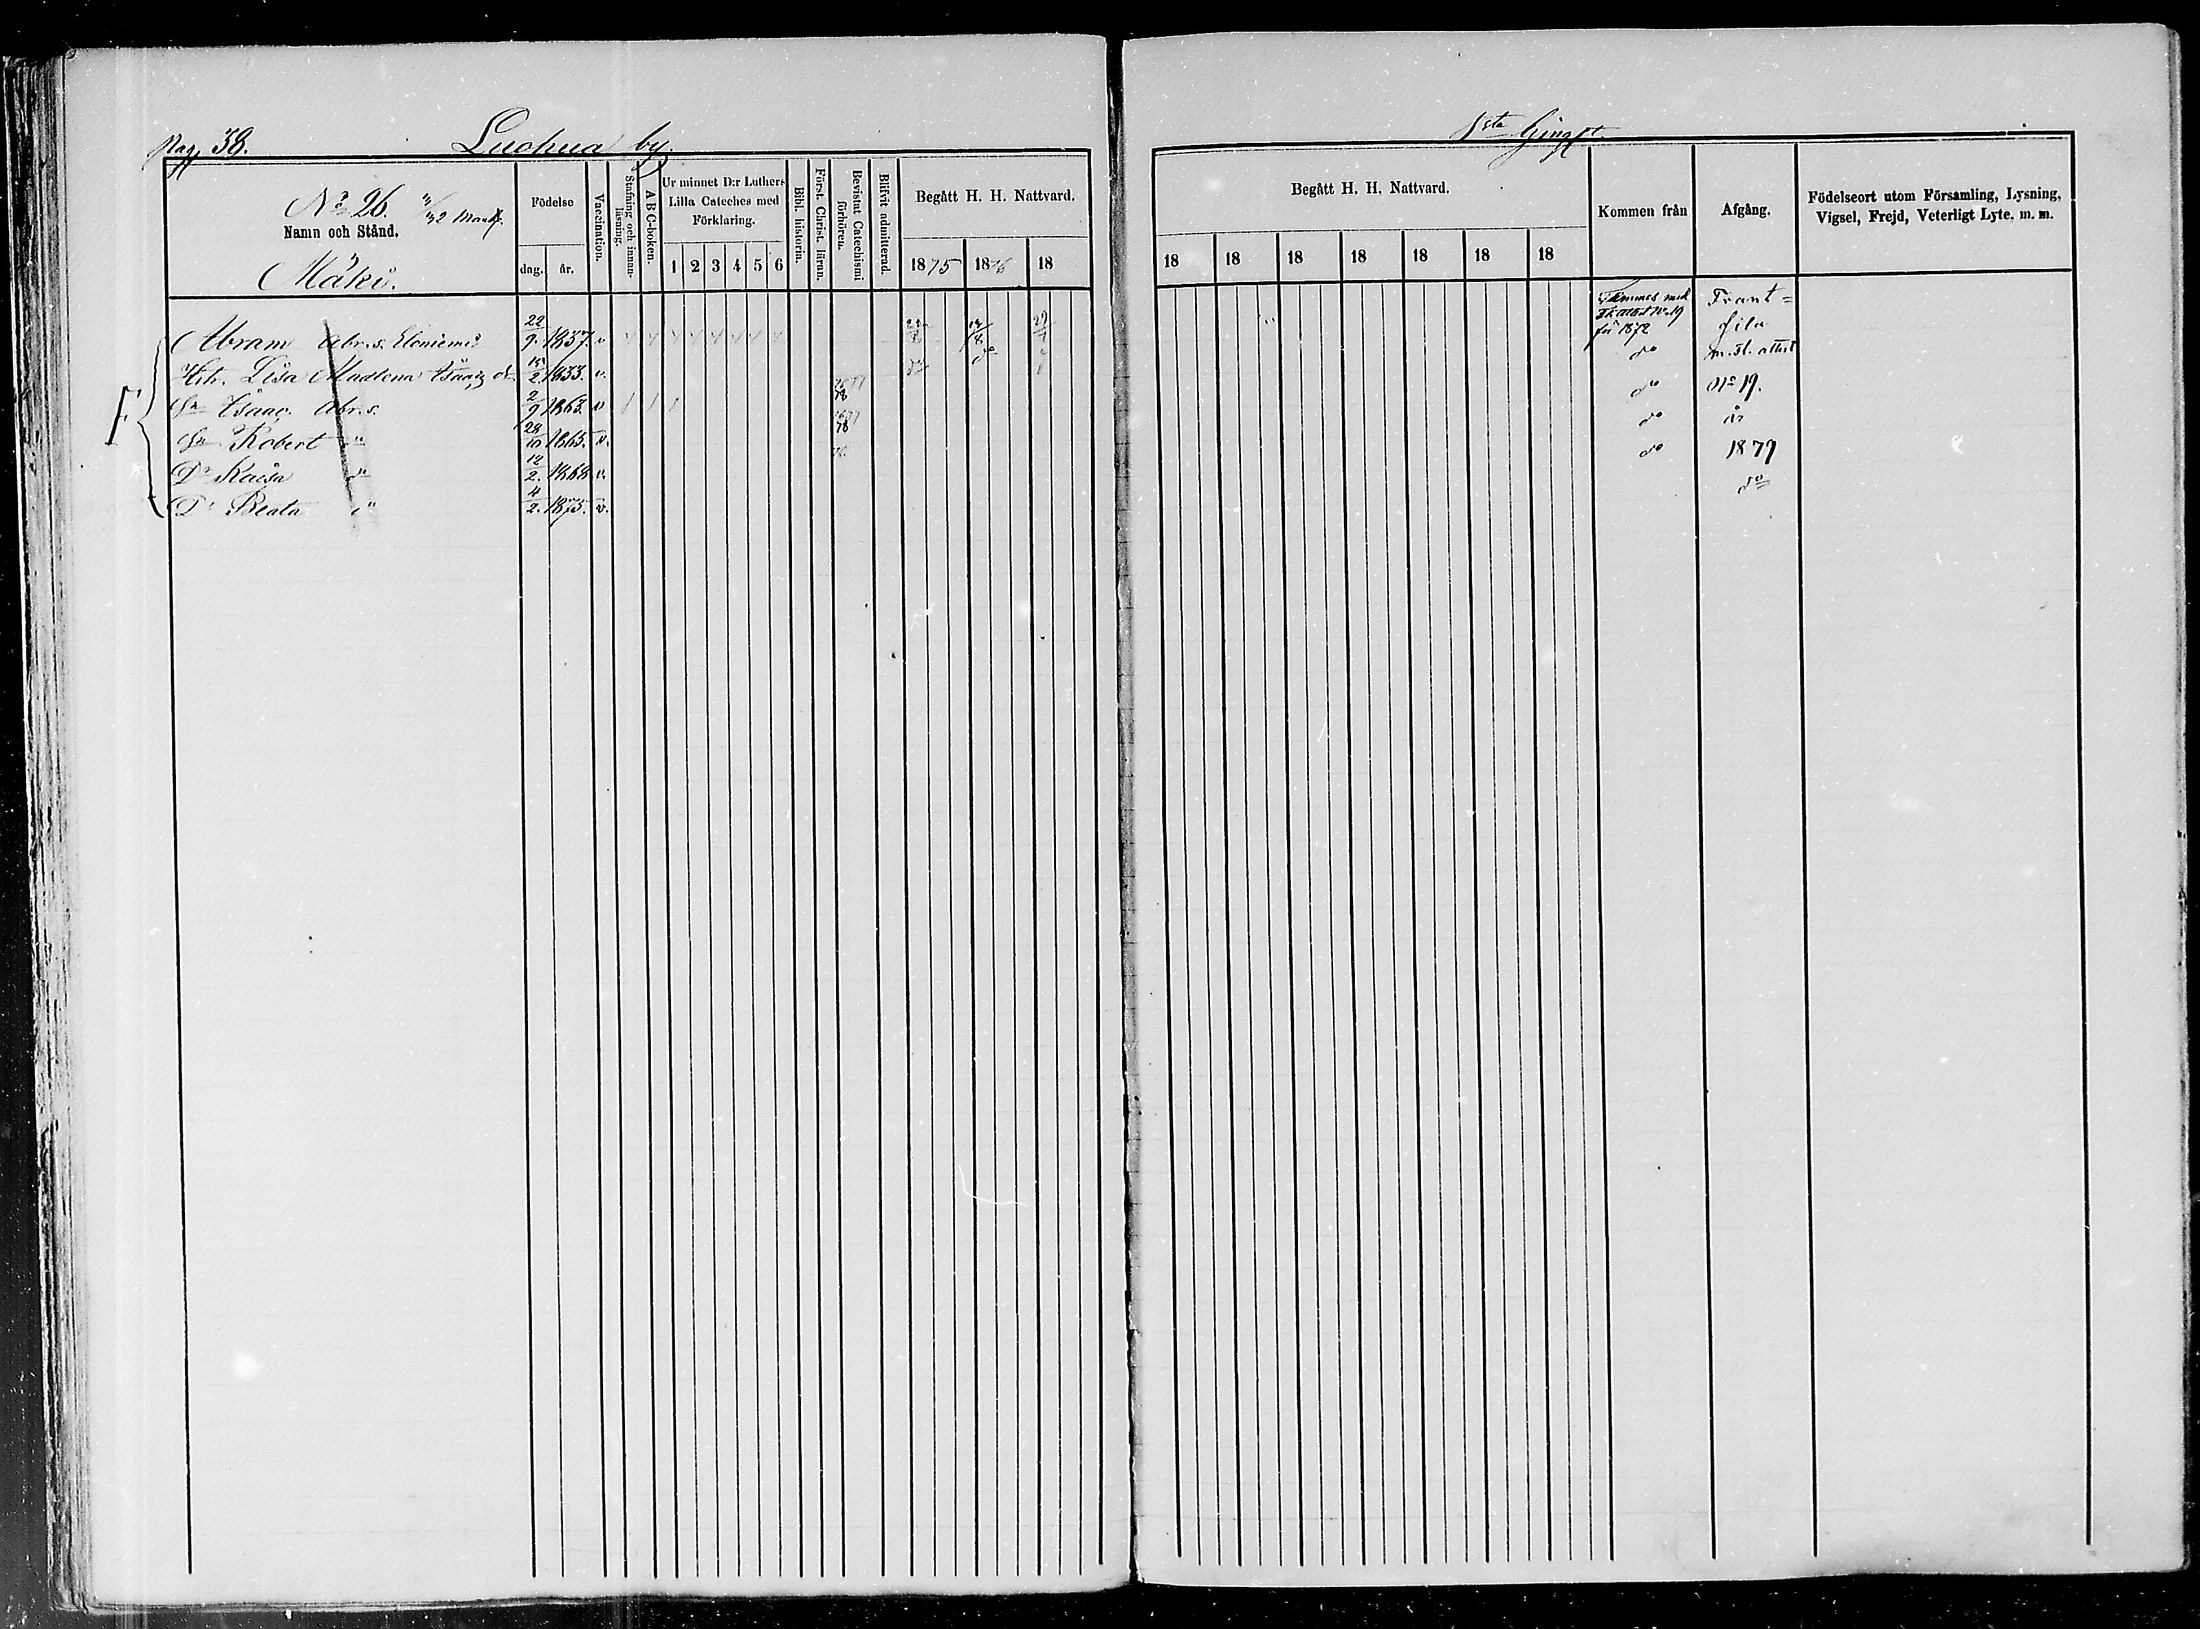 Pag. 38. Luohua by. 1sta Gingft.
No 26. Mantl.
Namn och Stånd.
Mäki.
Födelse
dag. år.
Vaccination.
Stafning och innanläsning.
ABC-boken.
Ur minnet D:r Luthers Lilla Cateches med Förklaring.
1 2 3 4 5 6
Bibl. historia.
Först. Christ. läran.
Bevistat Catechismi förhören.
Blifvit admitterad.
Begått H. H. Nattvard.
1875 1876 18
Begått H. H. Nattvard.
18 18 18 18 18 18 18
Kommen från
Afgång.
Födelseort utom Församling, Lysning, Vigsel, Frejd, Veterligt Lyte. m. m.
Abram Abr.s. Eloniemi 22/9. 1837. v
Hn. Lisa Madlena Isaacs d. 15/2 1833. v.
Sn Isaac Abr.s. 2/9 1863. v
Sn Robert do 28/10 1865. v.
Dr Kaisa do 12/2. 1868 v.
Dr Beata do 4/2. 1875. v.
F
No 19
för 1872
do
do
do
do
Frant=
sila
m. fl. attest
No 19.
år
1879
do